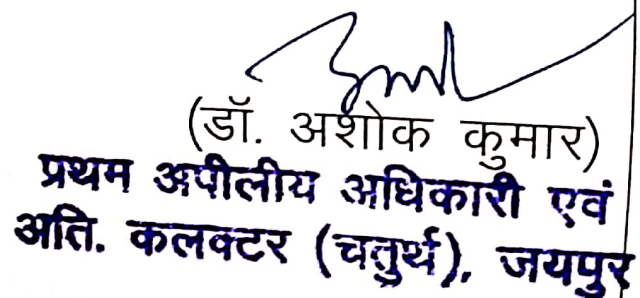 (डॉ. अशोक कुमार)
प्रथम अपीलीय अधिकारी एवं
अति. कलक्टर (चतुर्थ), जयपुर